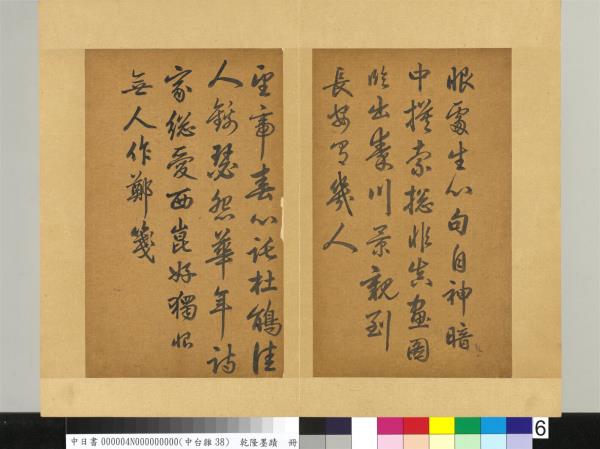 眼處生心句自神暗
中摸索總非真畫圖
臨出秦川景親到
長安有幾人
望帝春心託杜鵑佳
人錦瑟怨華年詩
家總愛西崑好獨恨
無人作鄭箋
中日書 000004N000000000(中台雜 38) 乾隆墨蹟 冊
6